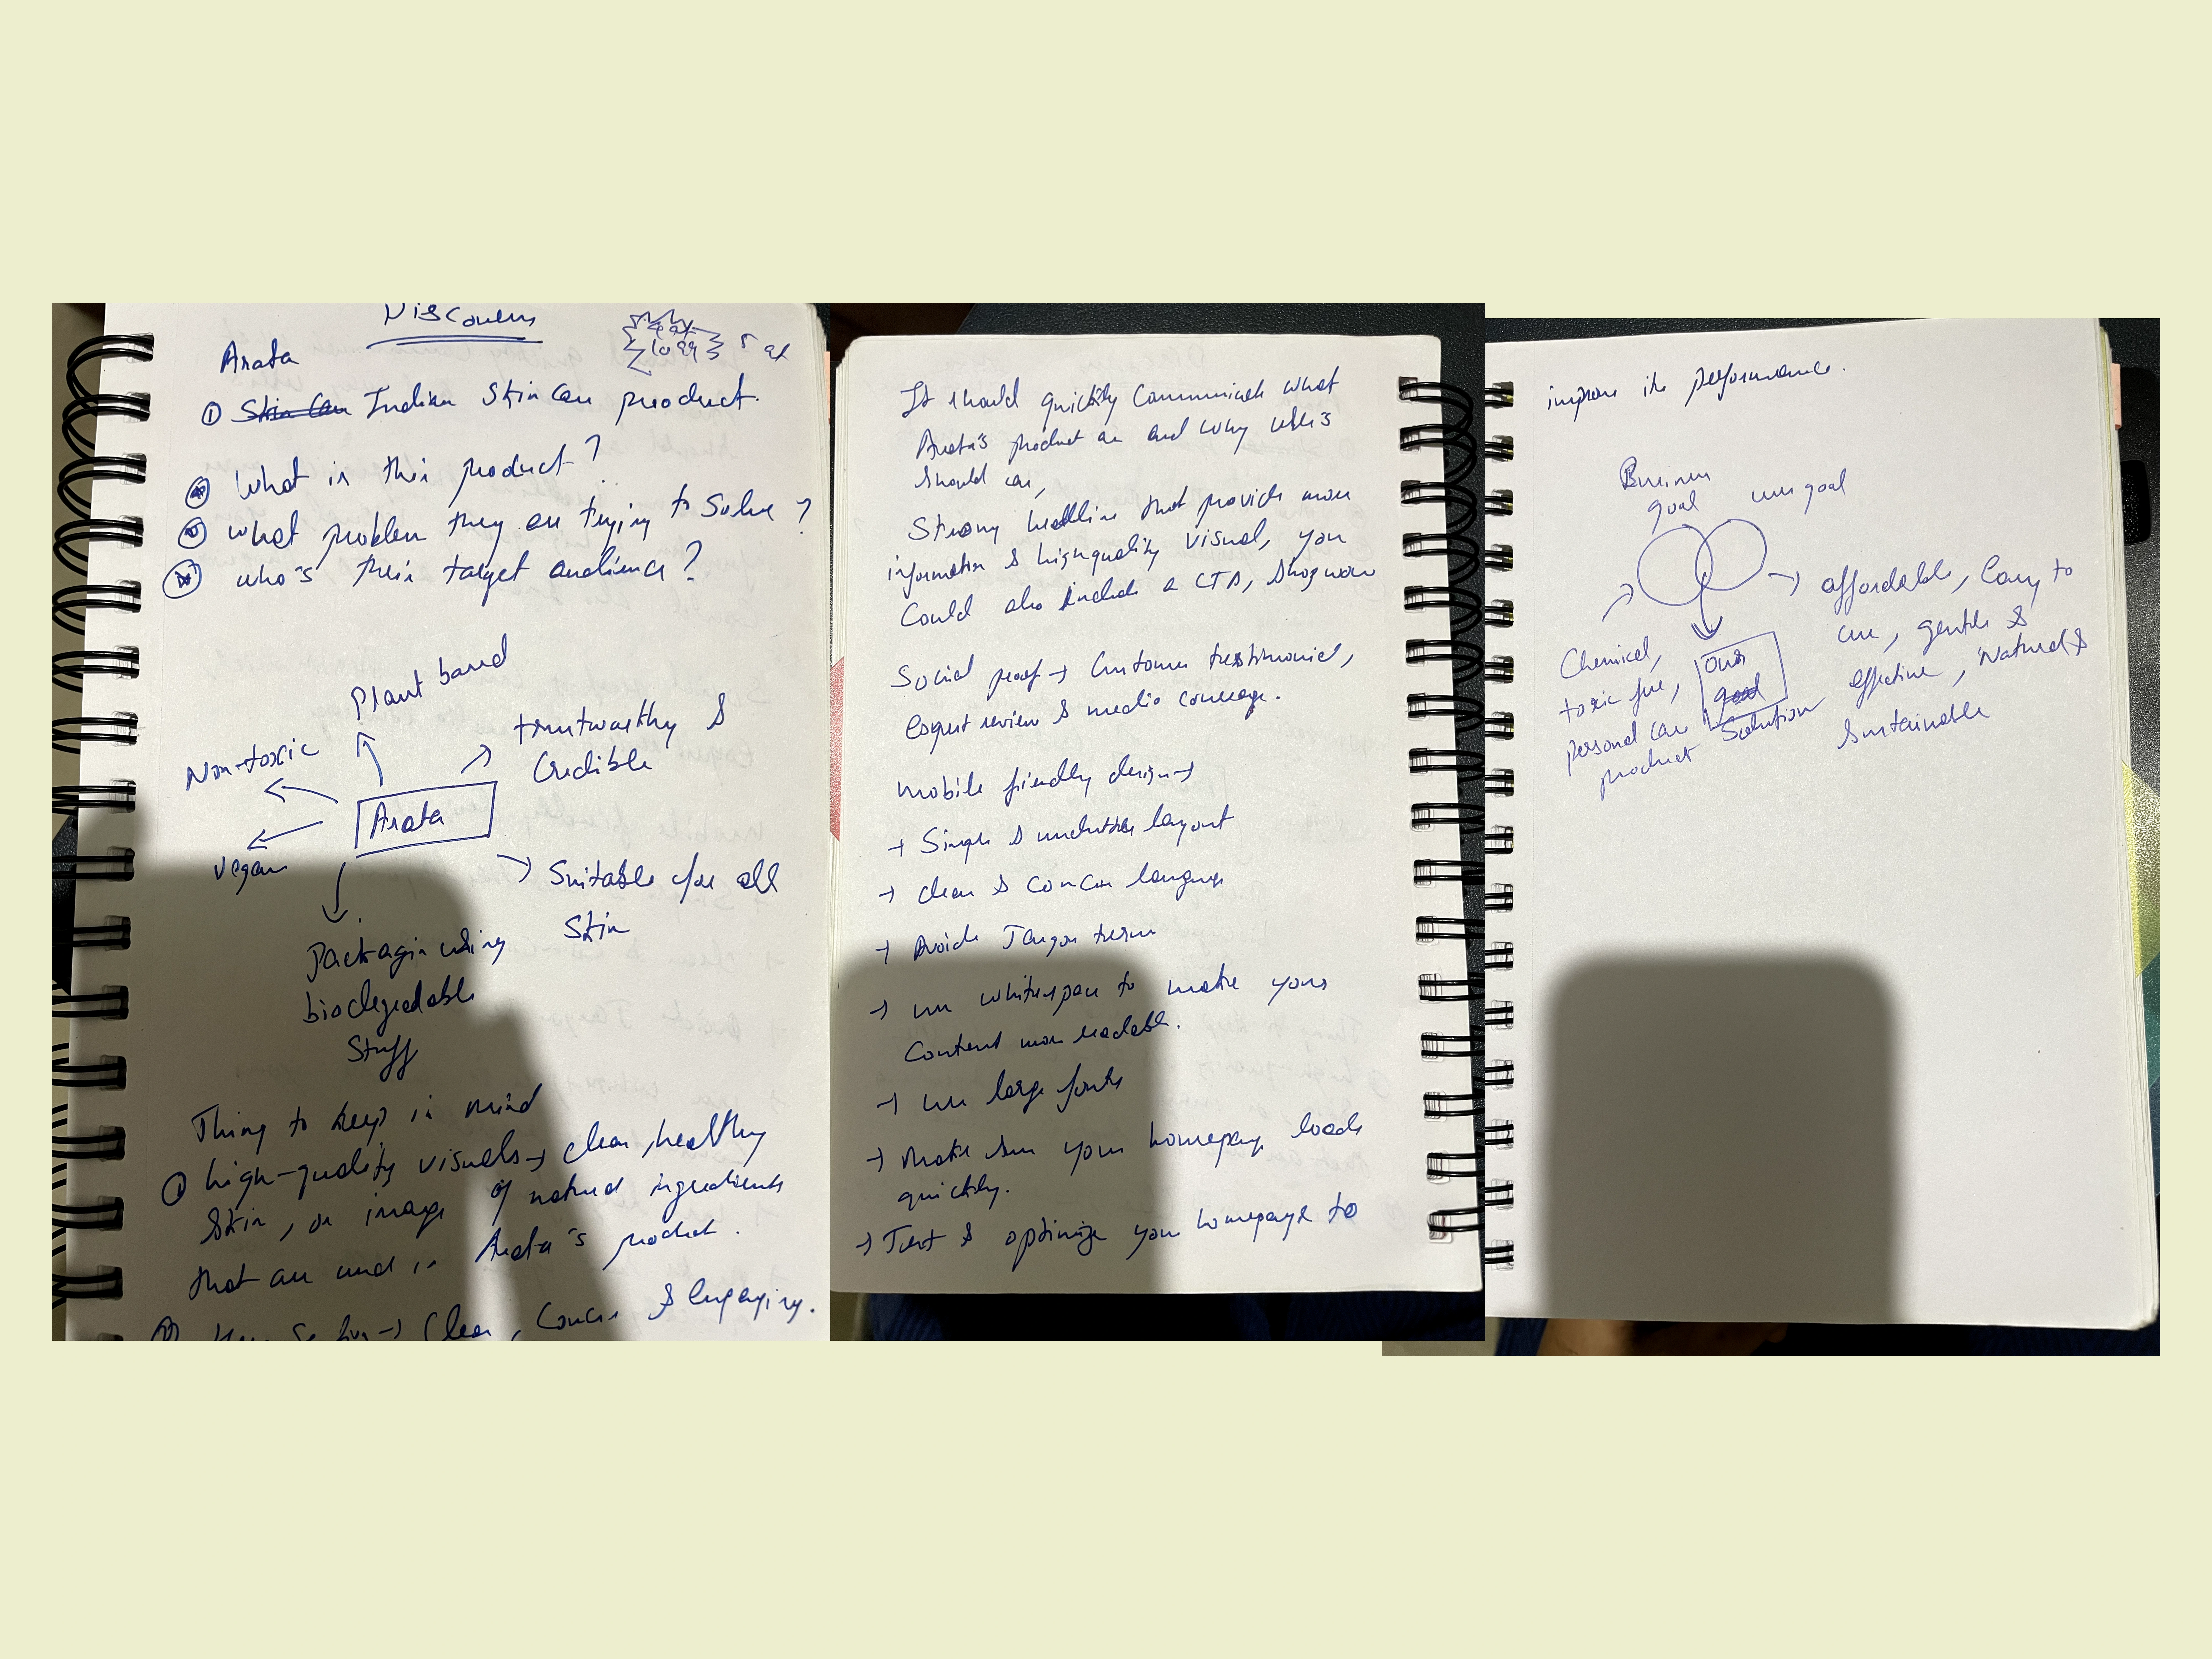 Discovery
Arata
① Skin Care Indian Skin Care product.
What is this product?
What problem they are trying to solve?
who's their target audience?
Plant based
Non-toxic
trustworthy &
Credible
Arata
vegan
Suitable for all
Skin
Packagin using
biodegradable
Stuff
Thing to keep in mind
① high-quality visuals → clear, healthy
Skin, or image of natural ingredients
that are used in Arata's product.
→ Clear, Concise & Engaging.
It should quickly Communicate what
Arata's product are and why users
should care,
Strong headline that provide more
information & high quality visual, you
Could also include a CTA, Shop now
Social proof → Customer testimonial,
Expert review & media coverage.
Mobile friendly design →
→ Simple & uncluttered layout
→ clear & concise language
→ Avoid Jargon term
→ use whitespace to make your
Content more readable.
→ use large fonts
→ Make sure your homepage loads
quickly.
→ Test & optimize your homepage to
improve its performance.
Business
goal
user goal
Chemical,
toxic free,
personal care
product
Our
goal
Solution
affordable, Easy to
use, gentle &
effective, Natural &
Sustainable